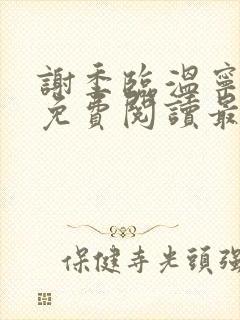 謝季臨溫寧
免費閱讀最
保健寺光頭強